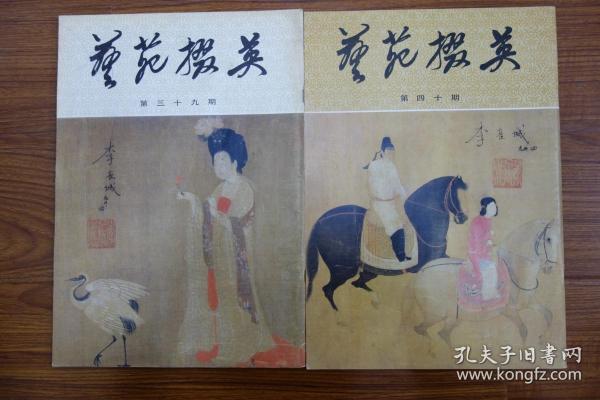 藝苑掇英
第三十九期
李长城
藝苑掇英
第四十期
李長城
孔夫子旧书网
www.kongfz.com